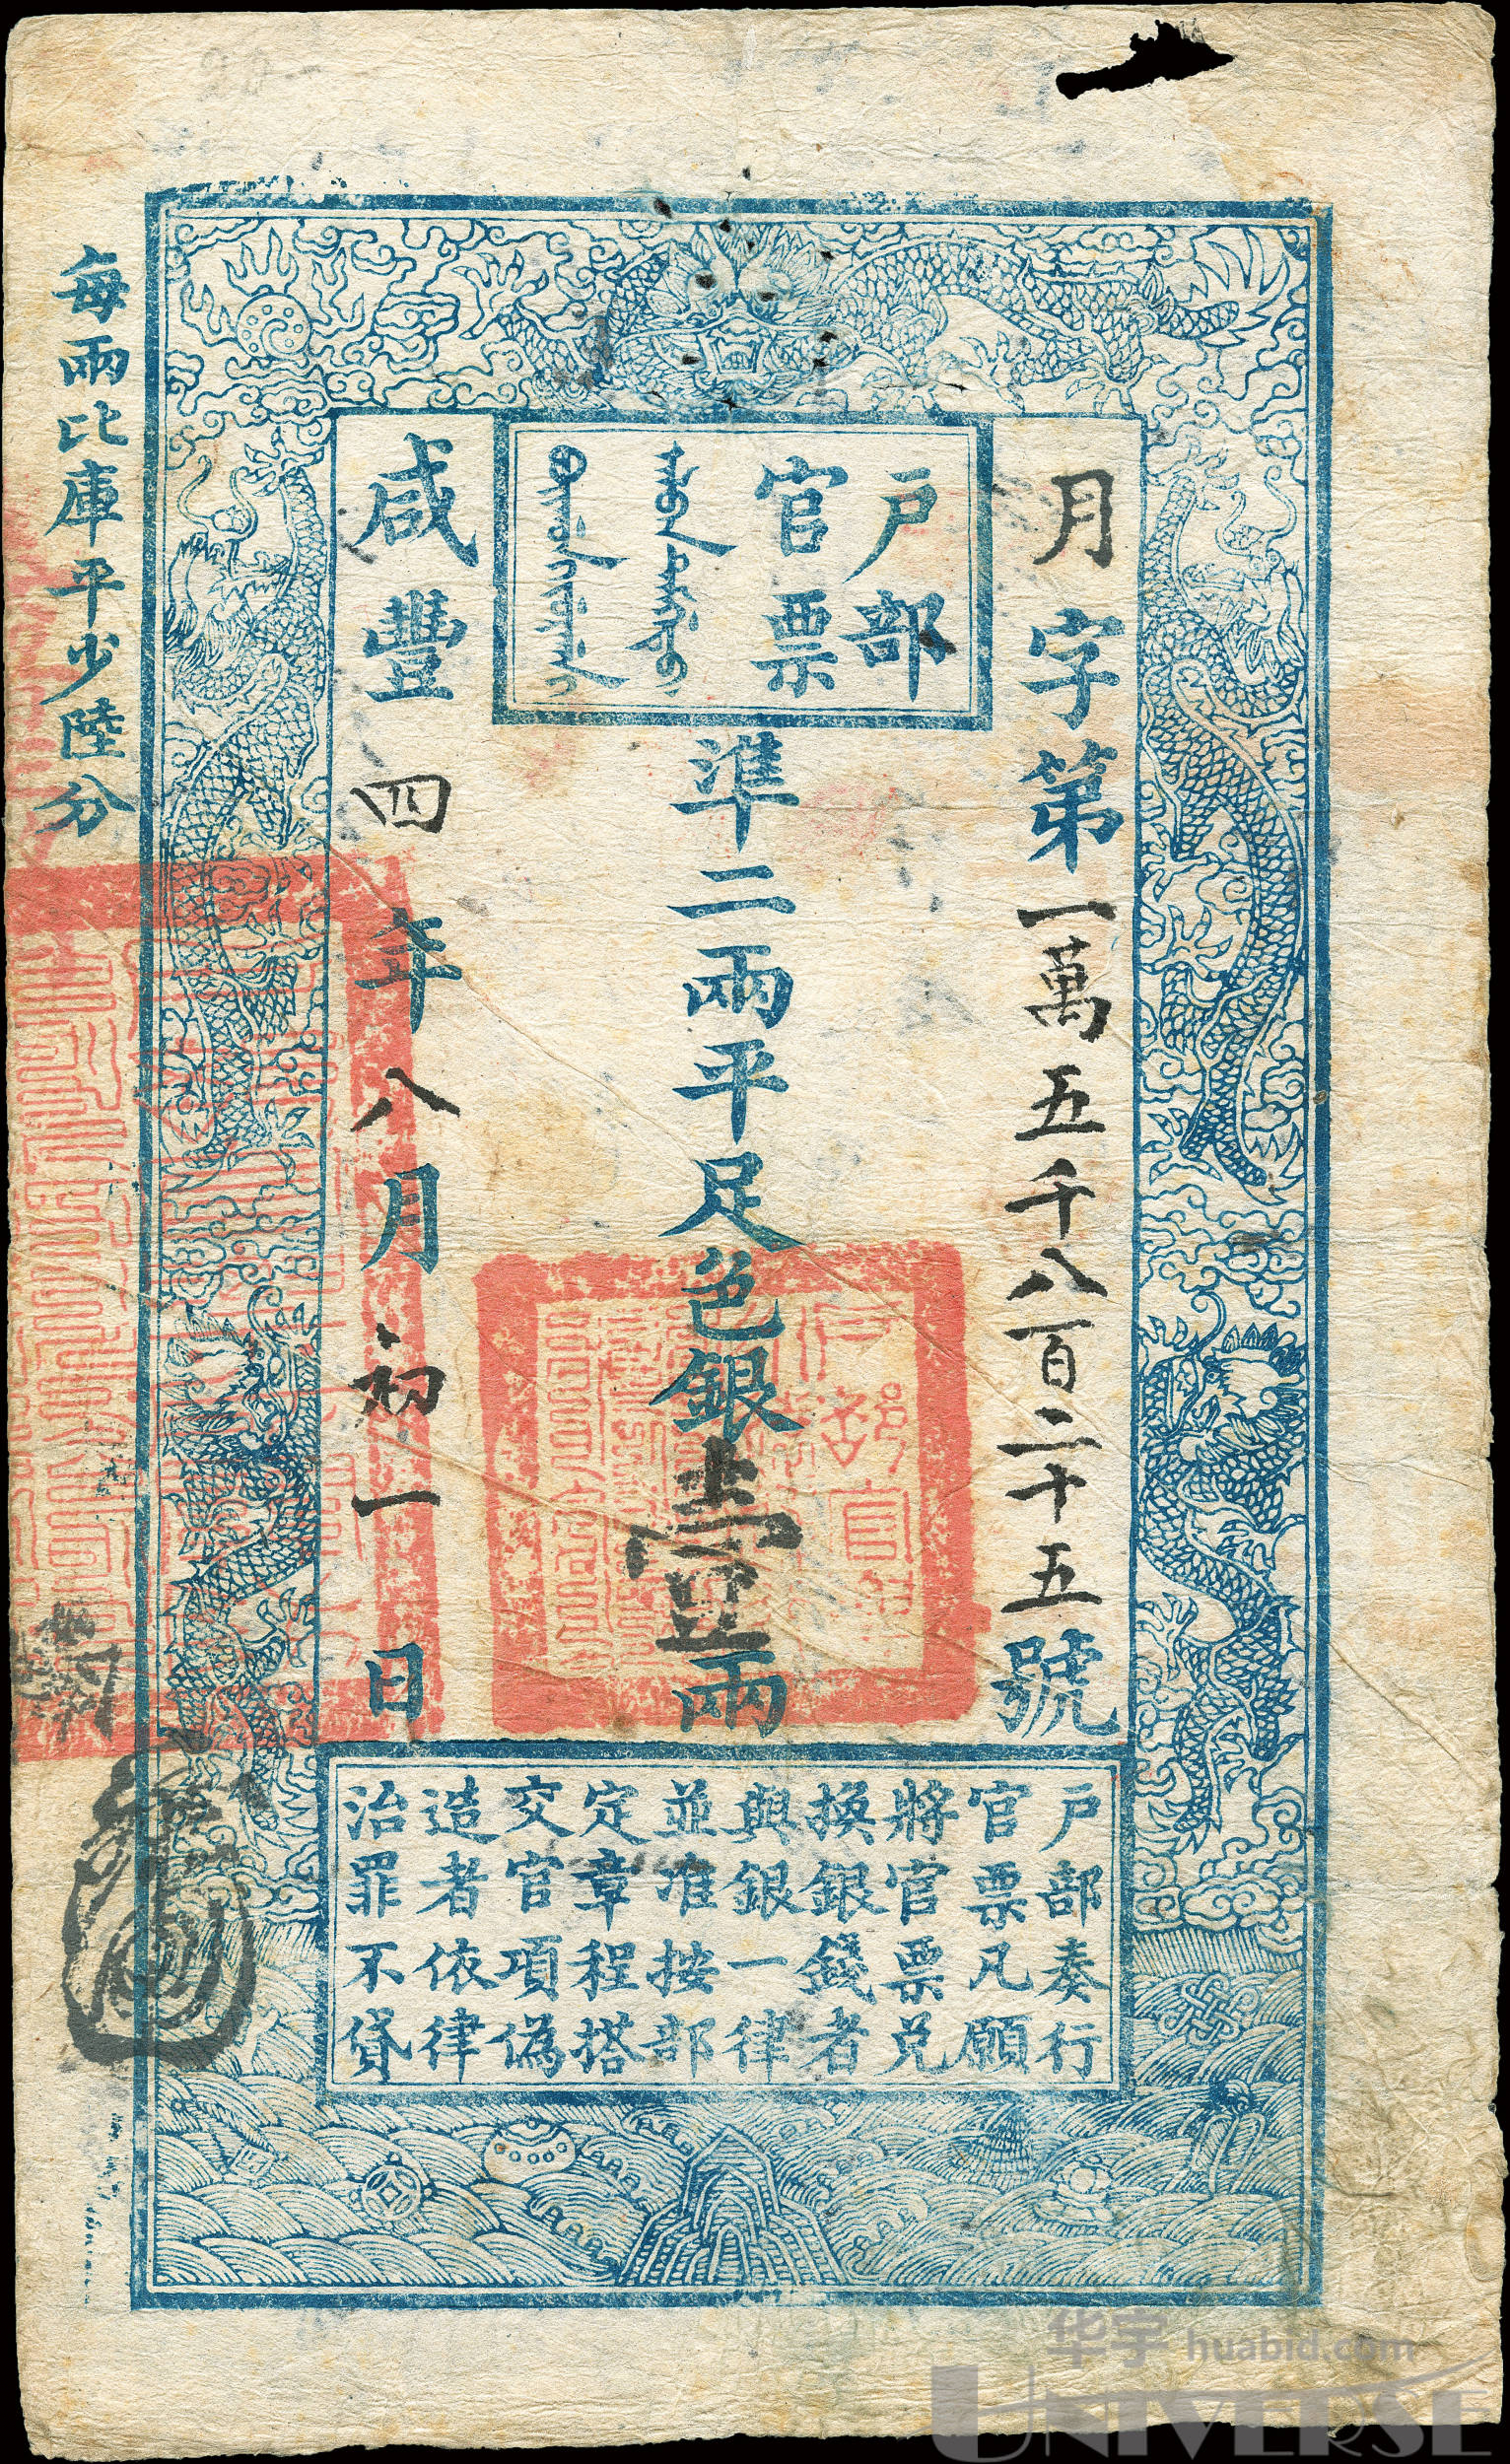 戶部
官票
月字第一萬五千八百二十五號
準二兩平足色銀壹兩
咸豐四年八月初一日
每兩比庫平少陸分
戶部奏行
官票凡願
將官票兌
換銀錢者
與銀一律
並准按部
定章程搭
交官項偽
造者依律
治罪不貸
华宇 huabid.com
UNIVERSE